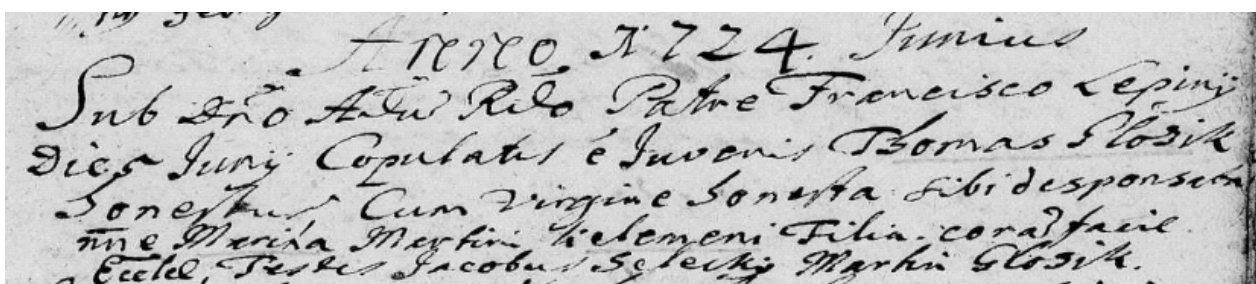 Anno 1724. Junius
Sub Dno Adm Rdo Patre Francisco Lepiny
Die 5 Junij Copulatus e Juvenis Thomas Glosik
honestus, Cum Virgine honesta sibi desponsata
nne Marina Martini Filia. cora facie
Eccle, Testes Jacobus Martin Glosik.